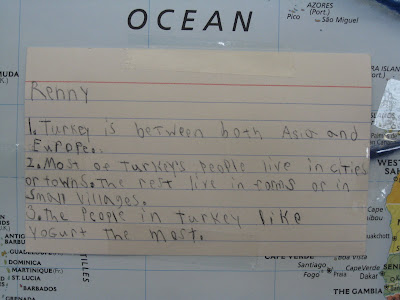 OCEAN
AZORES
(Port.)
Pico
São Miguel
MUDA
(U.K.)
Renny
1. Turkey is between both Asia and
Europe.
2. Most oe Turkey's people live in cities
or towns. The rest live in farms or in
small villages.
3. the people in turkey like
Yogurt the most.
RA ISLAND
(Port.)
CANA
Cape Verde
uakchott
Cape
Verde
Dakar
CAPE VERDE
Boa Vista
Santiago
Fogo
Praia
THE GAMBIA
ANTIG
BARBU
GUADELOU
DOMINICA
MARTINIQUE (Fr.)
ST. LUCIA
BARBADOS
GRENADA
TILLES